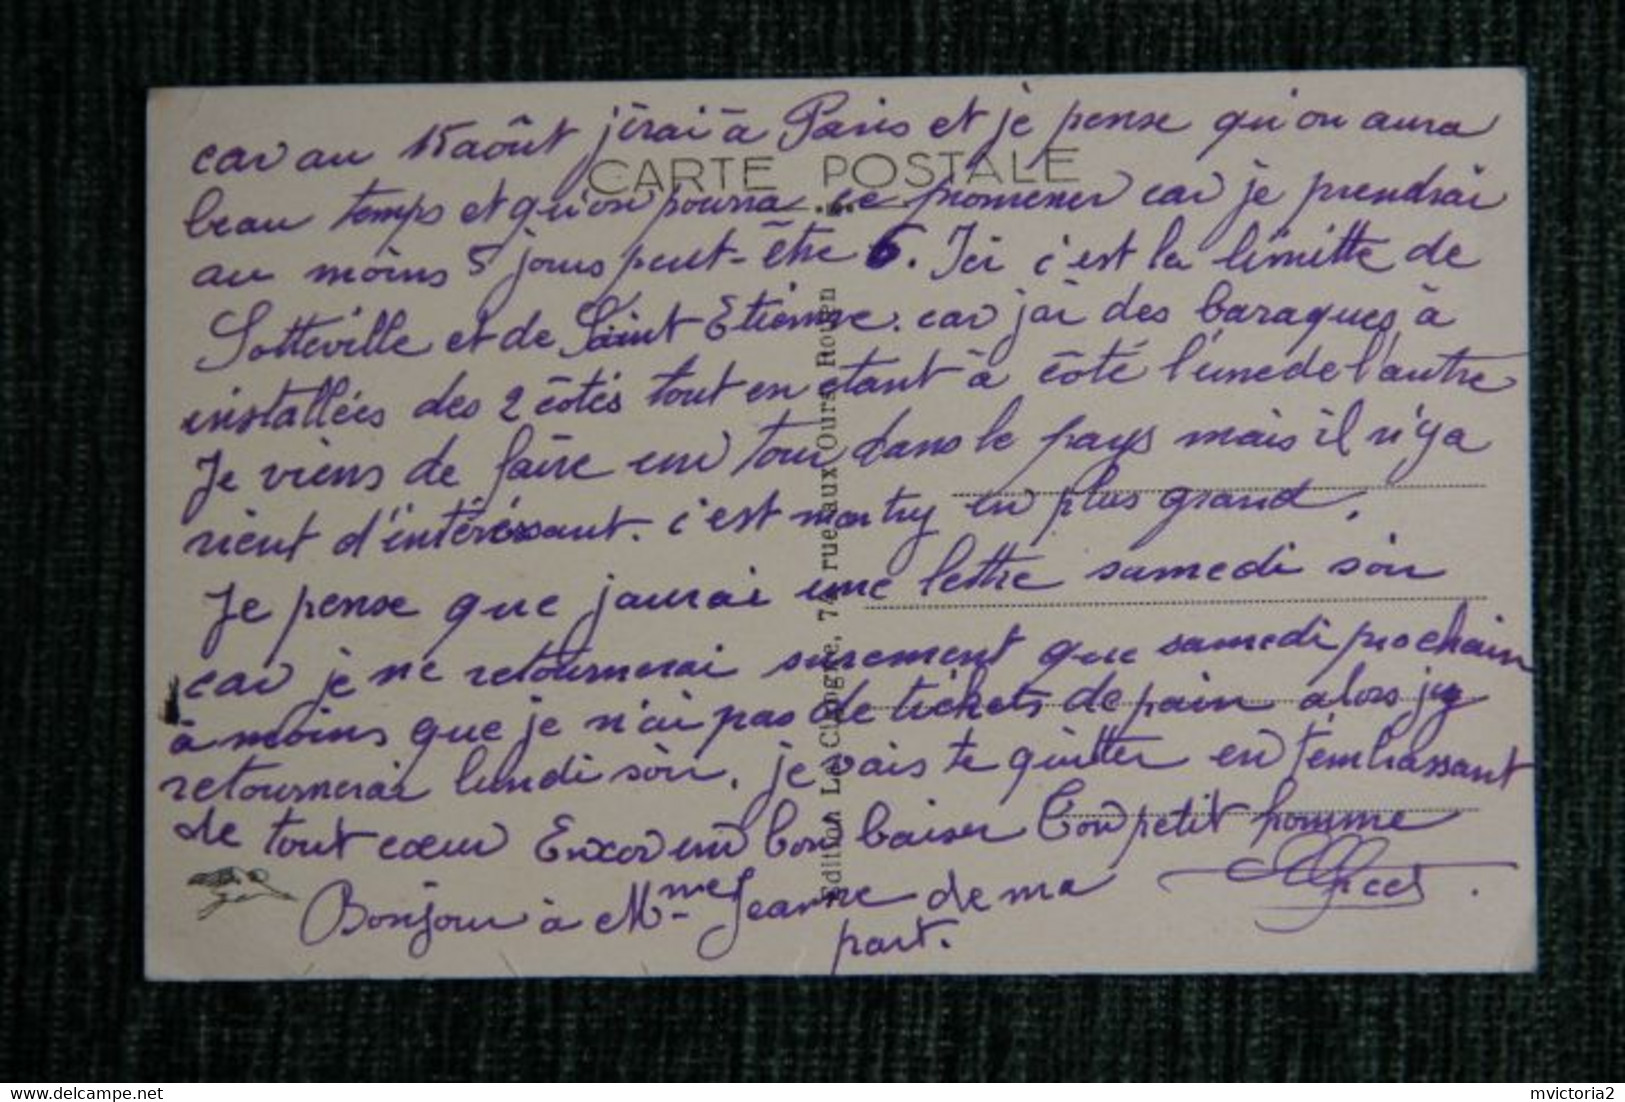 car au 15 août j'irai à Paris et je pense qu'on aura
CARTE POSTALE
beau temps et qu'on pourra ce promener car je prendrai
au moins 5 jours peut-être 6. Ici c'est la limitte de
Sotteville et de Saint-Etienne. car j'ai des baraques à
installées des 2 côtés tout en etant à côté l'une de l'autre
Je viens de faire un tour dans le pays mais il n'y a
rient d'intéréssant. c'est martry en plus grand.
Je pense que jaurai une lettre samedi soir
car je ne retournerai surement que samedi prochain
à moins que je n'ai pas de tickets de pain alors j'y
retournerai lundi soir. je vais te quitter en t'embrassant
de tout cœur Encor un bon baiser Ton petit homme
Bonjour à Mme Jeanne de ma
part.
Edition Le Clogre, 74, rue aux Ours, Rouen
mvictoria2